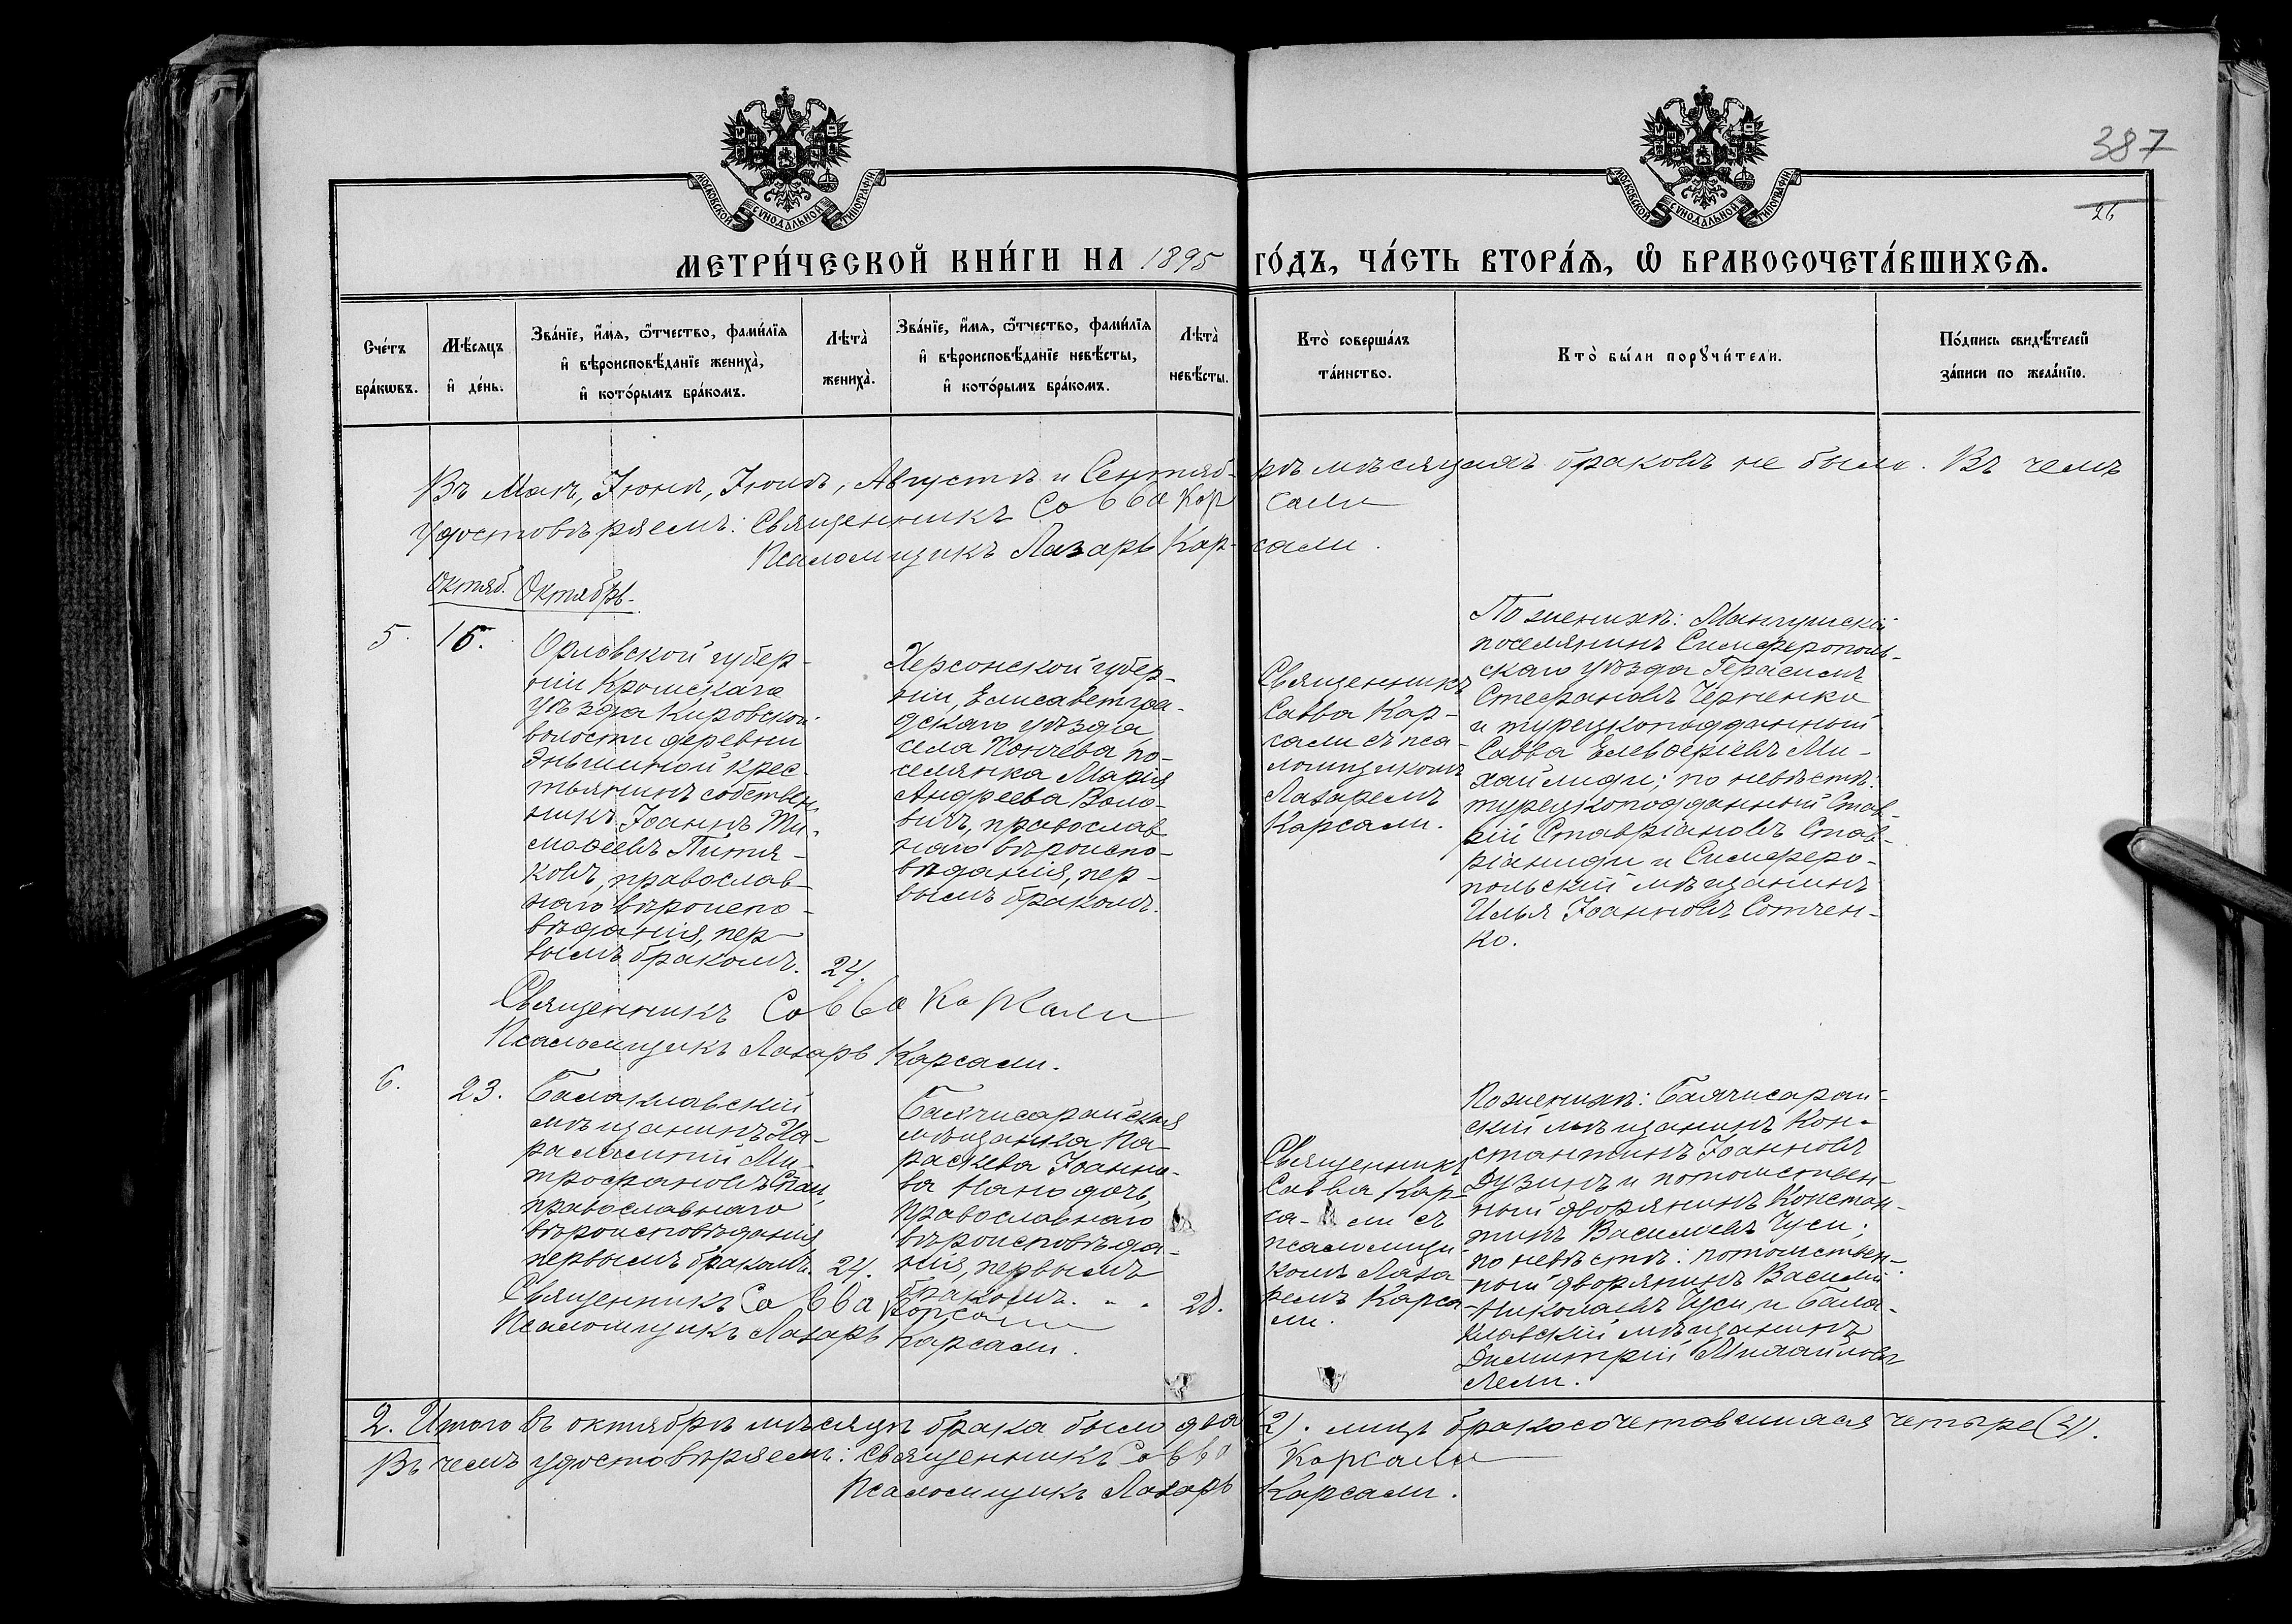 387
26
МОСКОВСКОЙ СѴНОДАЛЬНОЙ ТИПОГРАФІИ
МОСКОВСКОЙ СѴНОДАЛЬНОЙ ТИПОГРАФІИ
МЕТРИ́ЧЕСКОЙ КНИ́ГИ НА 1895 ГО́ДЪ, ЧА́СТЬ ВТОРА́Я, Ѡ БРАКОСОЧЕТА́ВШИХСЯ.
Сче́тъ
бра́кѡвъ.
Мѣ́сяцъ
и҆ де́нь.
Зва́нїе, и҆́мя, ѻ҆́тчество, фами́лїя
и҆ вѣроисповѣ́данїе жениха̀,
и҆ кото́рымъ бра́комъ.
Лѣ́та̀
жениха̀.
Зва́нїе, и҆́мя, ѻ҆́тчество, фами́лїя
и҆ вѣроисповѣ́данїе невѣ́сты,
и҆ кото́рымъ бра́комъ.
Лѣ́та̀
невѣ́сты.
Кто̀ соверша́лъ
та́инство.
Кто̀ бы́ли порꙋчи́тели.
По́дпись свидѣ́телей
за́писи по жела́нїю.
Въ Маѣ, Іюнѣ, Іюлѣ, Августѣ и Сентяб-рѣ мѣсяцахъ браковъ не было. Въ чемъ
удостовѣряемъ: Священникъ Савва Карсали
Псаломщикъ Лазарь Кар-сали.
Октяб. Октябрь.
5.
15.
Орловской губер-
ніи Кромскаго
уѣзда Кировской
волости деревни
крес-
тьянинъ собствен-
никъ Іоаннъ Ти-
моѳеевъ Питя-
ковъ, православ-
наго вѣроиспо-
вѣданія, пер-
вымъ бракомъ. 24.
Херсонской губер-
ніи, Елисаветгра-
дскаго уѣзда
села по-
селянка Марія
Андреева Воло-
вичъ, православ
наго вѣроиспо-
вѣданія, пер-
вымъ бракомъ.
Священникъ
Савва Кар-
сали съ пса-
ломщикомъ
Лазаремъ
Карсали.
По женихѣ: Мангушскій
поселянинъ Симферополь-
скаго уѣзда Герасимъ
Стефановъ Черненко
и турецкоподданный
Савва Елевѳеріевъ Ми-
хайлиди; по невѣстѣ:
турецкоподданный Став-
рій Ставріановъ Став-
ріаниди и Симферо-
польскій мѣщанинъ
Илья Іоанновъ Сотчен-
ко.
Священникъ Савва Карсали
Псаломщикъ Лазарь Карсали.
6.
23.
Балаклавскій
мѣщанинъ Ха-
рлампій Ми-
трофановъ
православнаго
вѣроисповѣданія
первымъ бракомъ. 24.
Бахчисарайская
мѣщанка Па-
раскева Іоанно-
ва
православнаго
вѣроисповѣда-
нія, первымъ
бракомъ. - - 20.
Священникъ
Савва Кар-
са-ли съ
псаломщи-
комъ Лаза-
ремъ Карса-
ли.
По женихѣ: Бахчисарай-
скій мѣщанинъ Кон-
стантинъ Іоанновъ
Дузинъ и потомствен-
ный дворянинъ Констан-
тинъ Васильевъ Чуси;
по невѣстѣ: потомствен-
ный дворянинъ Василій
Николаевъ Чуси и Бала-
клавскій мѣщанинъ
Димитрій Михайловъ
Лели.
Священникъ Савва Карсали
Псаломщикъ Лазарь Карсали.
2. Итого въ октябрѣ мѣсяцѣ брака было два (2). лицъ бракосочетавшихся четыре (4).
Въ чемъ удостовѣряемъ: Священникъ Савва Карсали
Псаломщикъ Лазарь Карсали.